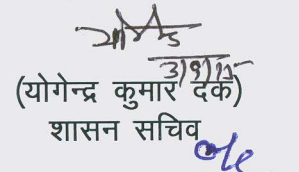 3/9/15
(योगेन्द्र कुमार दक)
शासन सचिव